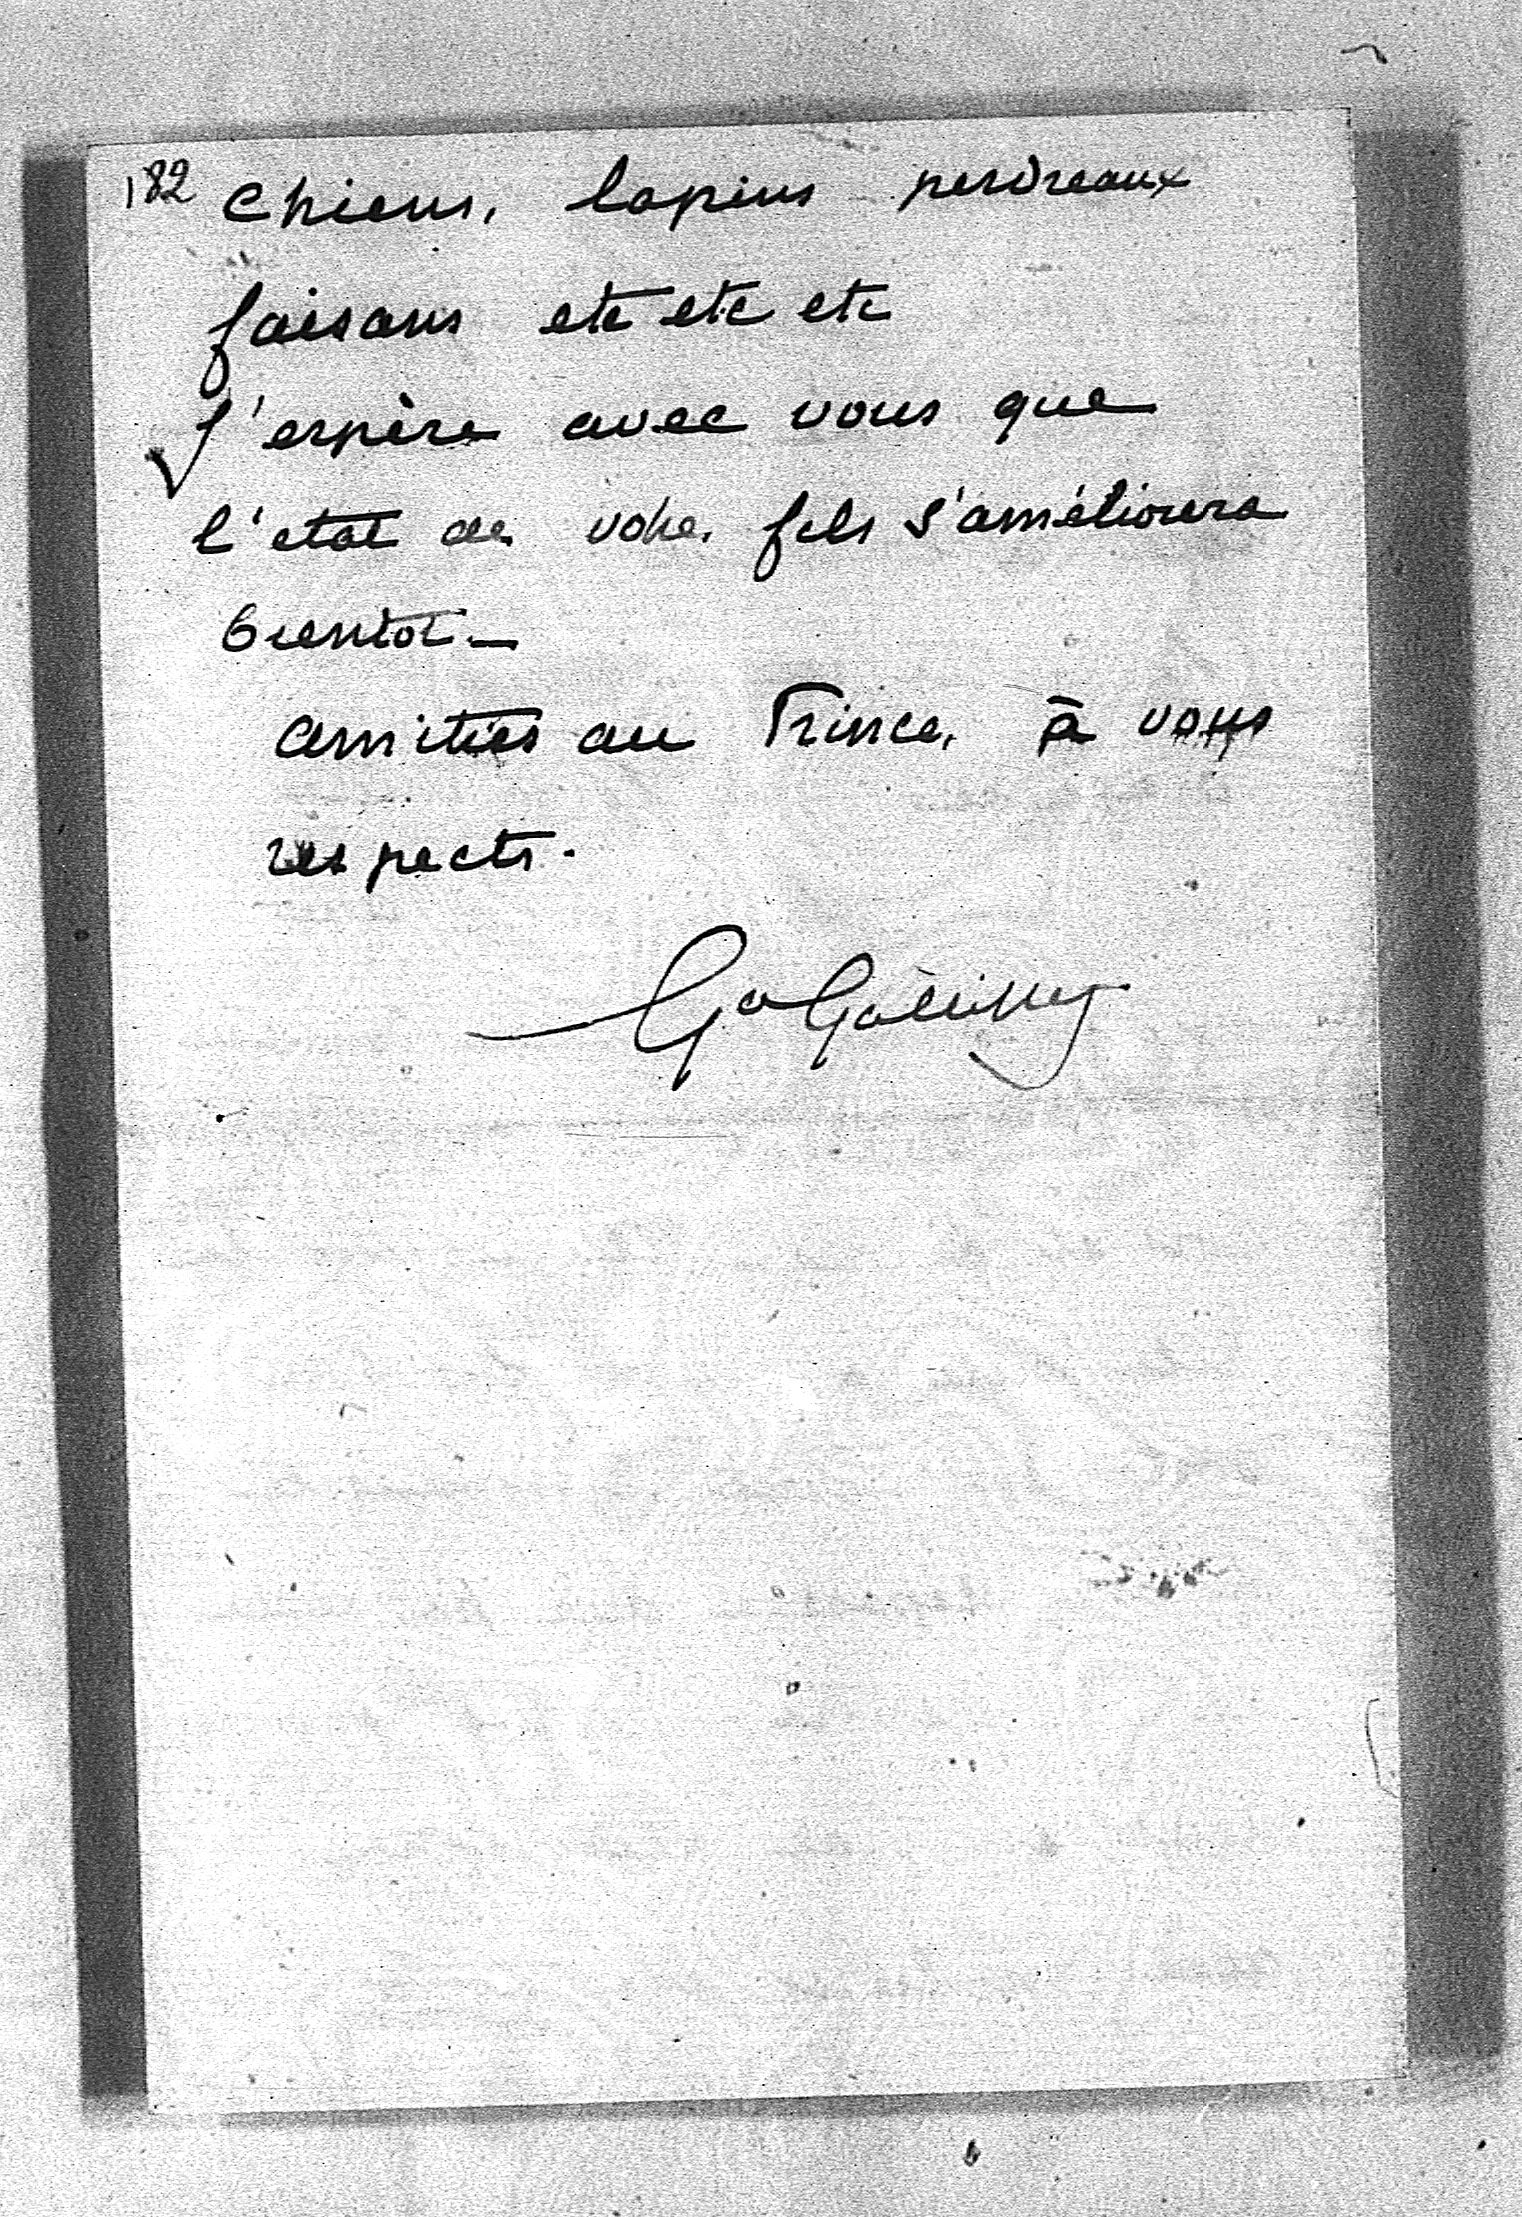 182 chiens, lapins perdreaux
faisans etc etc etc
J'espère avec vous que
l'etat de votre fils s'améliorera
bientot_
amitiés au Prince, à vous
respects.
Ga Galliffet